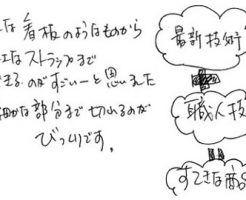 は看板のようなものから
はストラップまで
きるのがすごいーと思いました
細かな部分まで切れるのが
びっくりです。
最新技術
職人技
すてきな商品